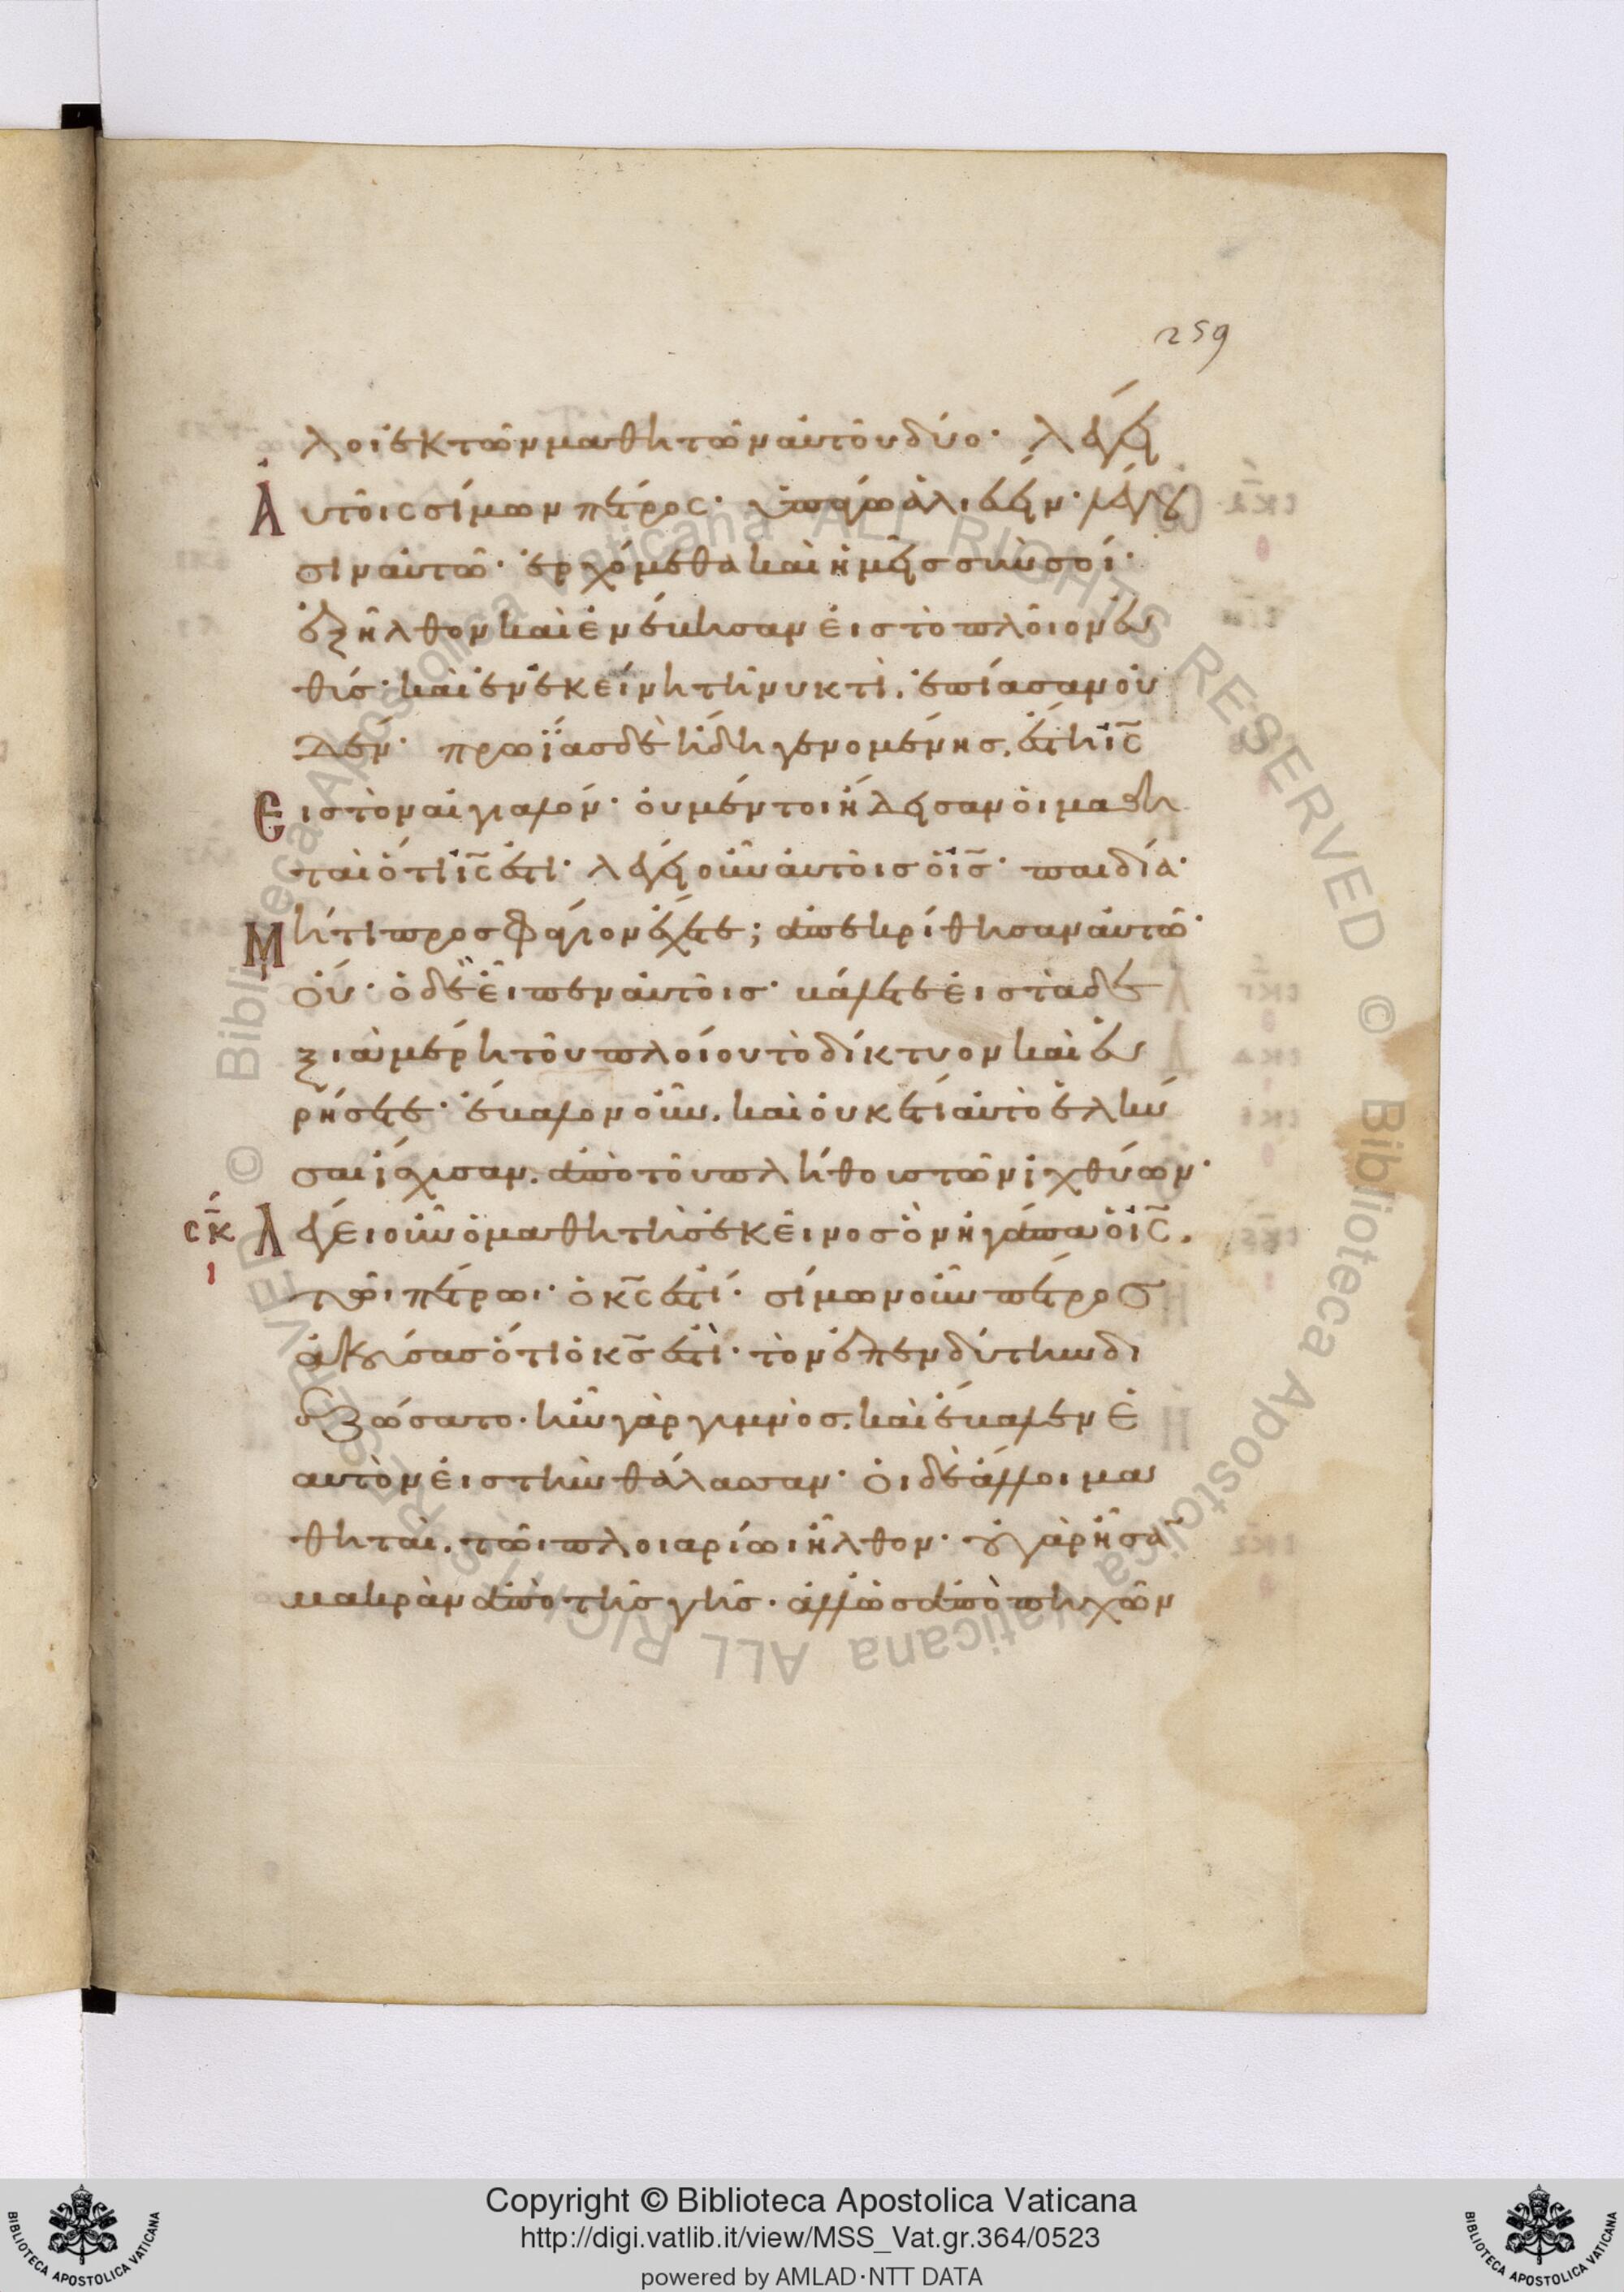 259
λοι ἐκ τῶν μαθητῶν αὐτοῦ δύο· λέγει
Αὐτοῖς σίμων πέτρος· ὑπάγω ἁλιεύειν· λέγου
σιν αὐτῶ· ἐρχόμεθα καὶ ἡμεῖς σὺν σοί·
ἐξῆλθον καὶ ἐνέβησαν εἰς τὸ πλοῖον εὐ
θύς· καὶ ἐν ἐκείνη τῆ νυκτὶ. ἐπίασαν οὐ
δέν· πρωΐας δὲ ἤδη γενομένης. ἔστη ὁ ις̅
Εἰς τὸν αἰγιαλόν· οὐ μέντοι ἤδεισαν οἱ μαθη
ταὶ ὅτι ις̅ ἐστι· λέγει οὖν αὐτοῖς ὁ ις̅· παιδία·
Μή τι προσφάγιον ἔχετε; ἀπεκρίθησαν αὐτῶ·
οὔ· ὁ δὲ εἶπεν αὐτοῖς· βάλετε εἰς τὰ δε
ξιὰ μέρη τοῦ πλοίου τὸ δίκτυον καὶ εὑ
ρήσετε· ἔβαλον οὖν. καὶ οὐκ ἔτι αὐτὸ ἑλκύ
σαι ἴσχυσαν. ἀπὸ τοῦ πλήθους τῶν ἰχθύων·
σκ̅
ι
Λέγει οὖν ὁ μαθητὴς ἐκεῖνος ὃν ἠγάπα ὁ ις̅.
τῶι πέτρωι· ὁ κς̅ ἐστί· σίμων οὖν πέτρος
ἀκούσας ὅτι ὁ κς̅ ἐστὶ· τὸν ἐπενδύτην δι
εζώσατο· ἦν γὰρ γυμνὸς. καὶ ἔβαλεν ἑ
αυτὸν εἰς τὴν θάλασσαν· οἱ δὲ ἄλλοι μα
θηταὶ. τῶι πλοιαρίωι ἦλθον· οὐ γὰρ ἦσαν
μακρὰν ἀπὸ τῆς γῆς· ἀλλ' ὡς ἀπὸ πηχῶν
Copyright © Biblioteca Apostolica Vaticana
http://digi.vatlib.it/view/MSS_Vat.gr.364/0523
powered by AMLAD·NTT DATA
BIBLIOTECA APOSTOLICA VATICANA
BIBLIOTECA APOSTOLICA VATICANA
© Biblioteca Apostolica Vaticana ALL RIGHTS RESERVED © Biblioteca Apostolica Vaticana ALL RIGHTS RESERVED